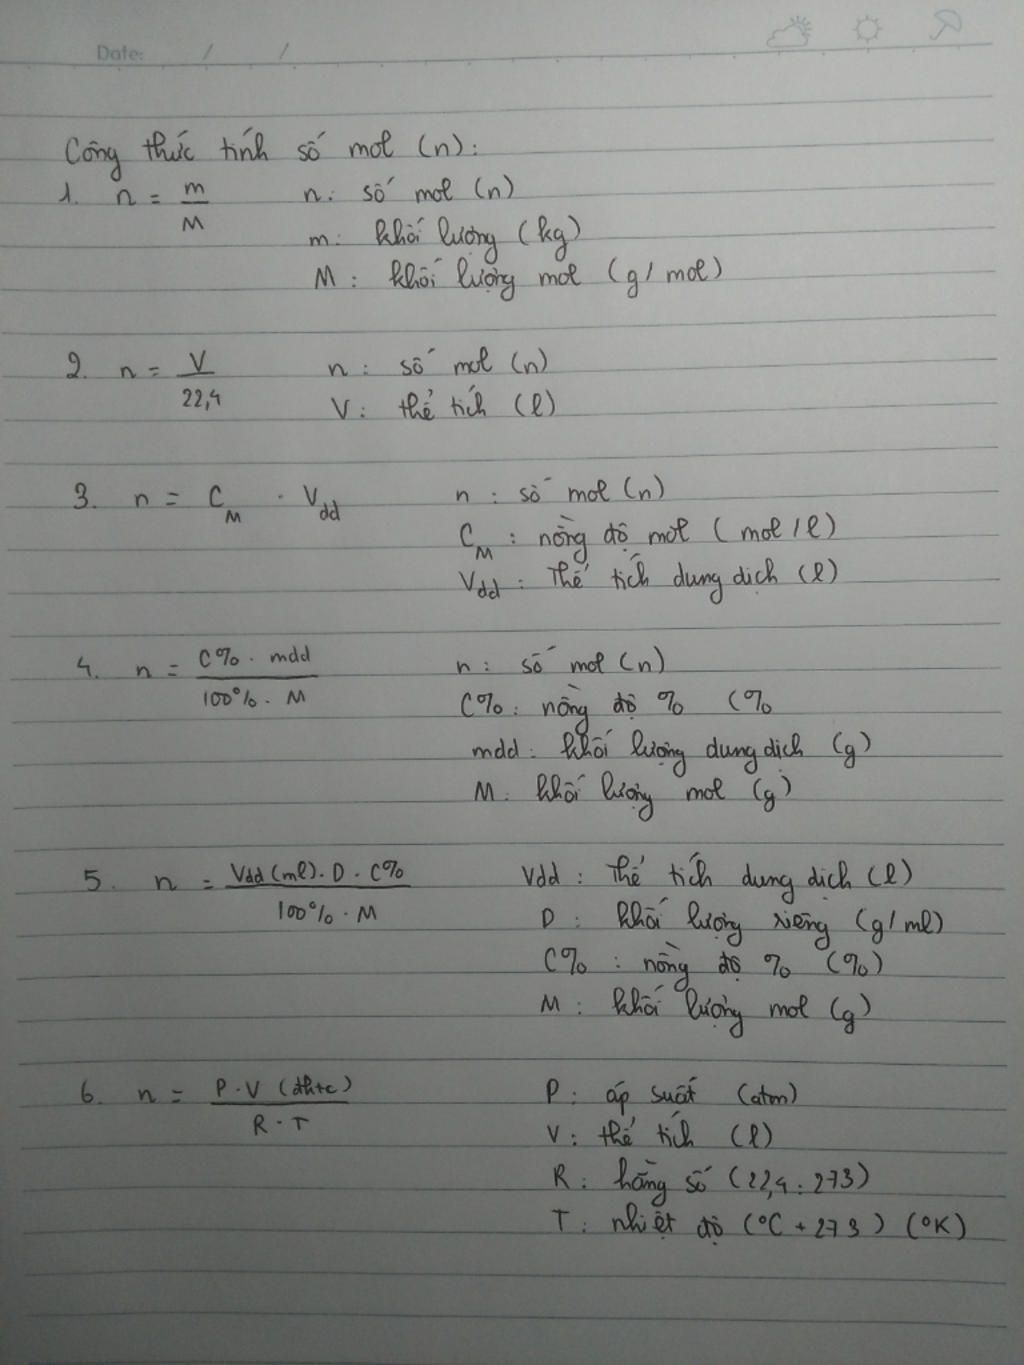 Date: / /
Công thức tính số mol (n):
1. n = m/M n: số mol (n)
m: khối lượng (kg)
M: khối lượng mol (g/mol)
2. n = V/22,4 n: số mol (n)
V: thể tích (l)
3. n = C_M . V_dd n: số mol (n)
C_M: nồng độ mol (mol/l)
V_dd: Thể tích dung dịch (l)
4. n = C%. mdd / 100%. M n: số mol (n)
C%: nồng độ % (%
mdd: khối lượng dung dịch (g)
M: khối lượng mol (g)
5. n = Vdd(ml). D. C% / 100%. M Vdd: Thể tích dung dịch (l)
D: khối lượng riêng (g/ml)
C%: nồng độ % (%)
M: khối lượng mol (g)
6. n = P.V (đktc) / R.T P: áp suất (atm)
V: thể tích (l)
R: hằng số (22,4:273)
T: nhiệt độ (°C + 273) (°K)